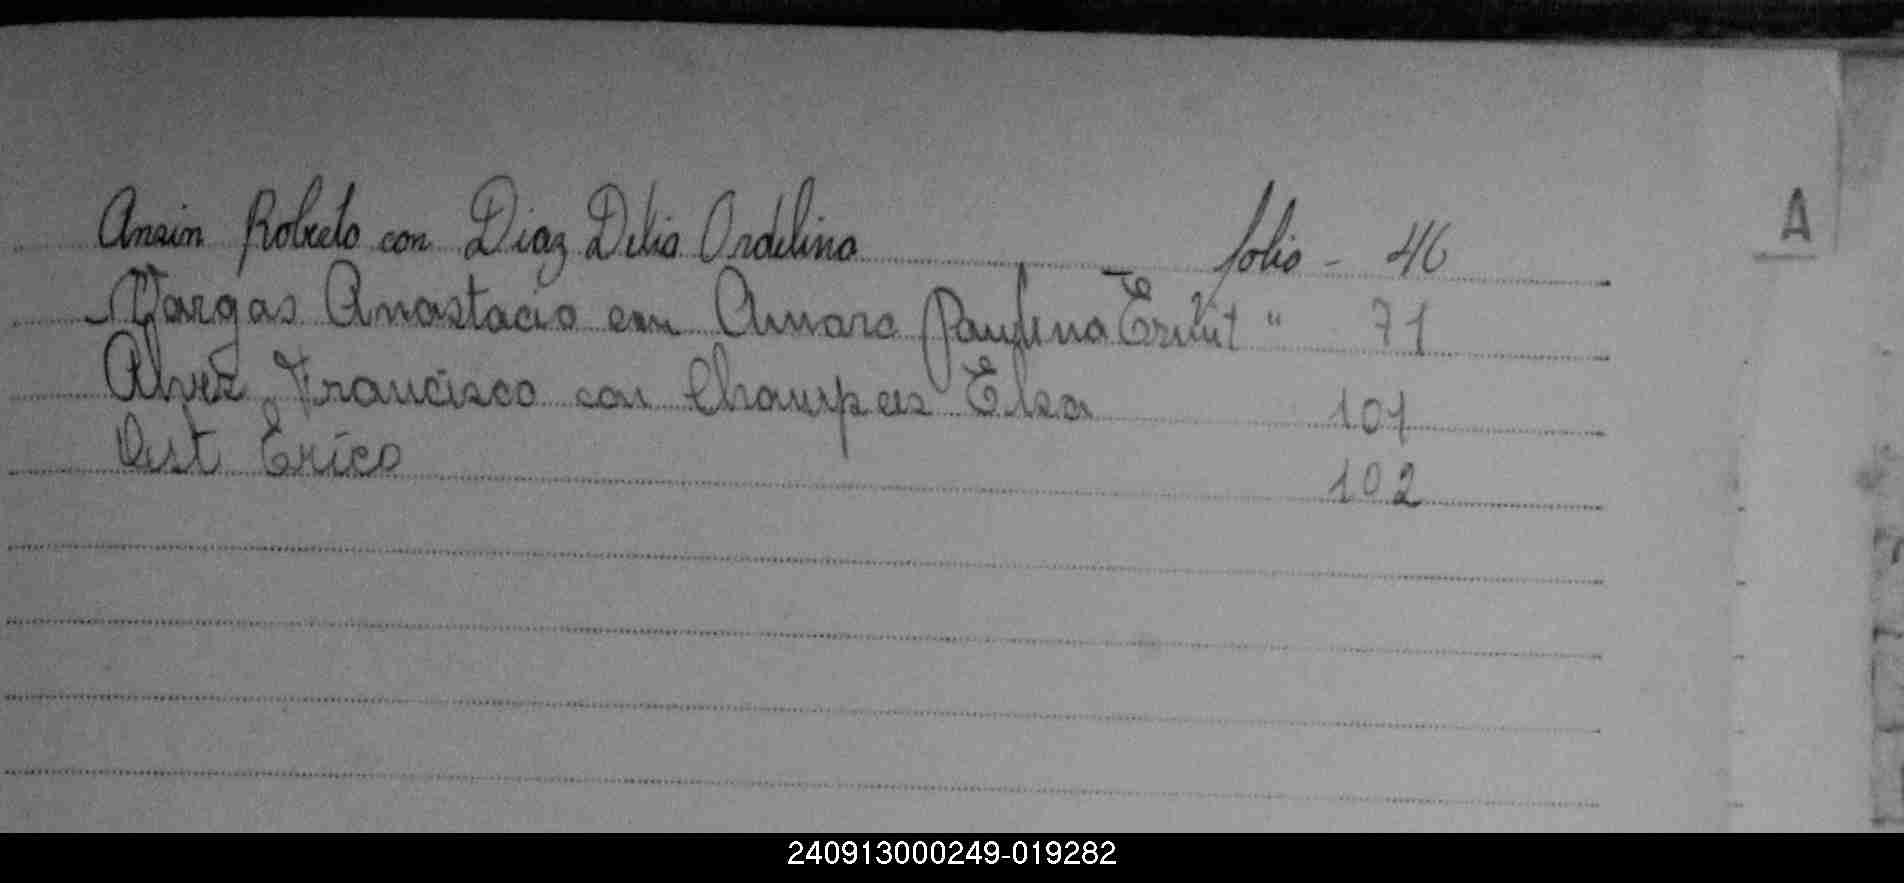 Ansin Roberto con Diaz Delia Ordelina folio - 46
A
Vargas Anastacio con Amaro Paulina " 71
Alvez Francisco con Elsa 101
Erico 102
240913000249-019282